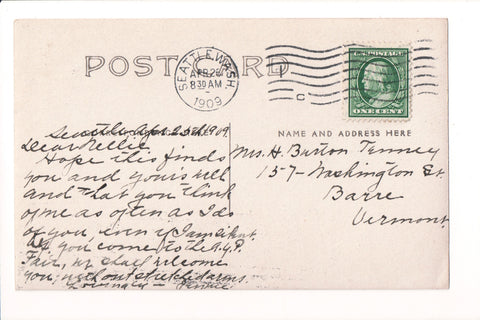 POST CARD
SEATTLE, WASH
APR 26
8 30 AM
1909
C
ONE CENT
NAME AND ADDRESS HERE
Seattle Apr 25th 1909
Dear Nellie
Hope this finds
you and yours well
and that you think
of me as often as I do
of you, even if I am silent.
If you come to the A.Y.P.
Fair, we shall welcome
you, with outstretched arms.
Lovingly -
Mrs. H. Burton Tenney
157 - Washington St.
Barre
Vermont.